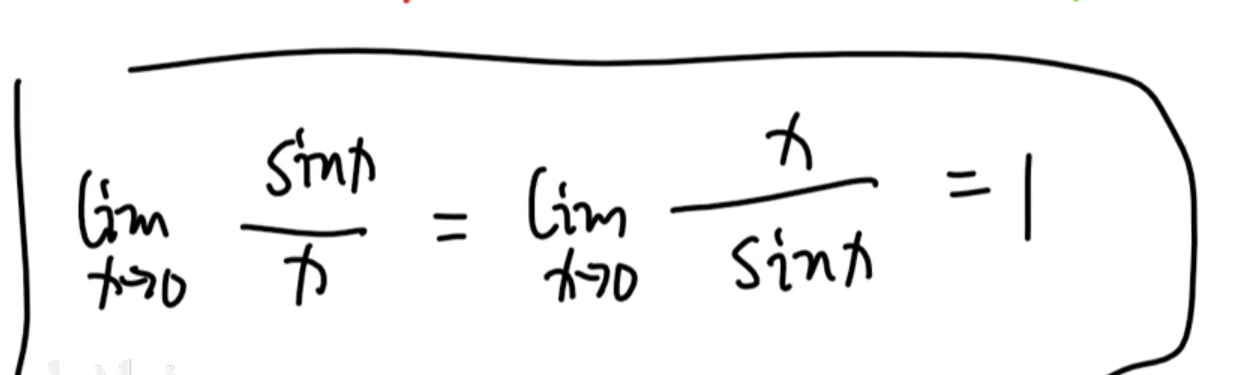 lim x→0 sinx/x = lim x→0 x/sinx = 1